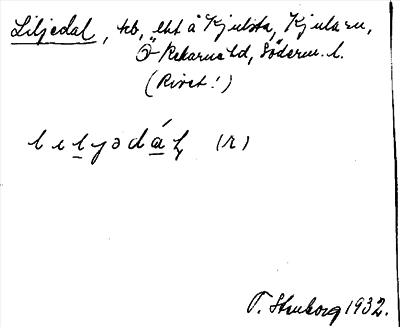 Liljedal, tb, lht å Kjulsta, Kjula sn,
Ö Rekarne hd, Söderm. l.
(Rivet!)
lilyɔdáł (r)
T. Stenborg 1932.